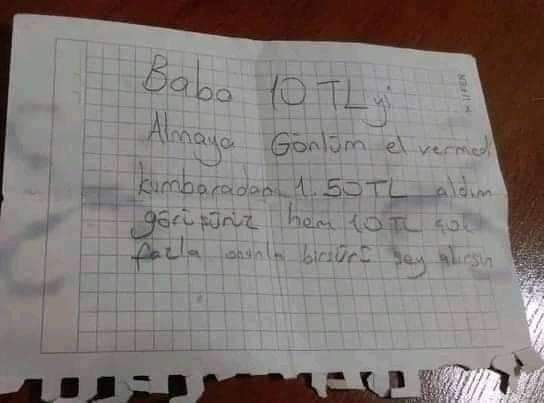 Baba 10 TL yi
Almaya Gönlüm el vermedi
kumbaradan 1.50 TL aldım
görüşürüz hem 10 TL çok
fazla onunla birsürü şey alırsın